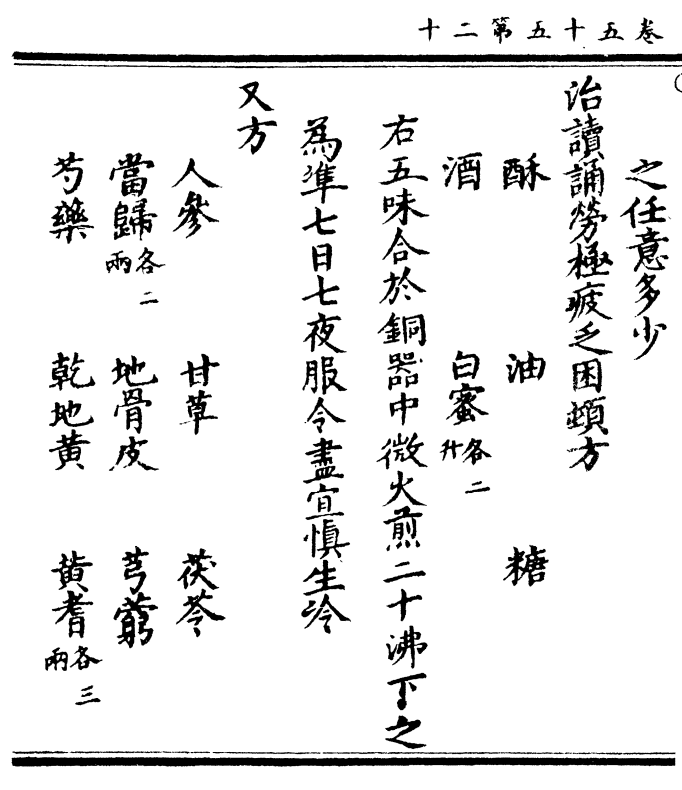 卷五十五第二十
之任意多少
治讀誦勞極疲乏困頓方
酥 油 糖
酒 白蜜各二升
右五味合於銅器中微火煎二十沸下之
為準七日七夜服令盡宜慎生冷
又方
人參 甘草 茯苓
當歸各二兩 地骨皮 芎藭
芍藥 乾地黃 黃耆各三兩